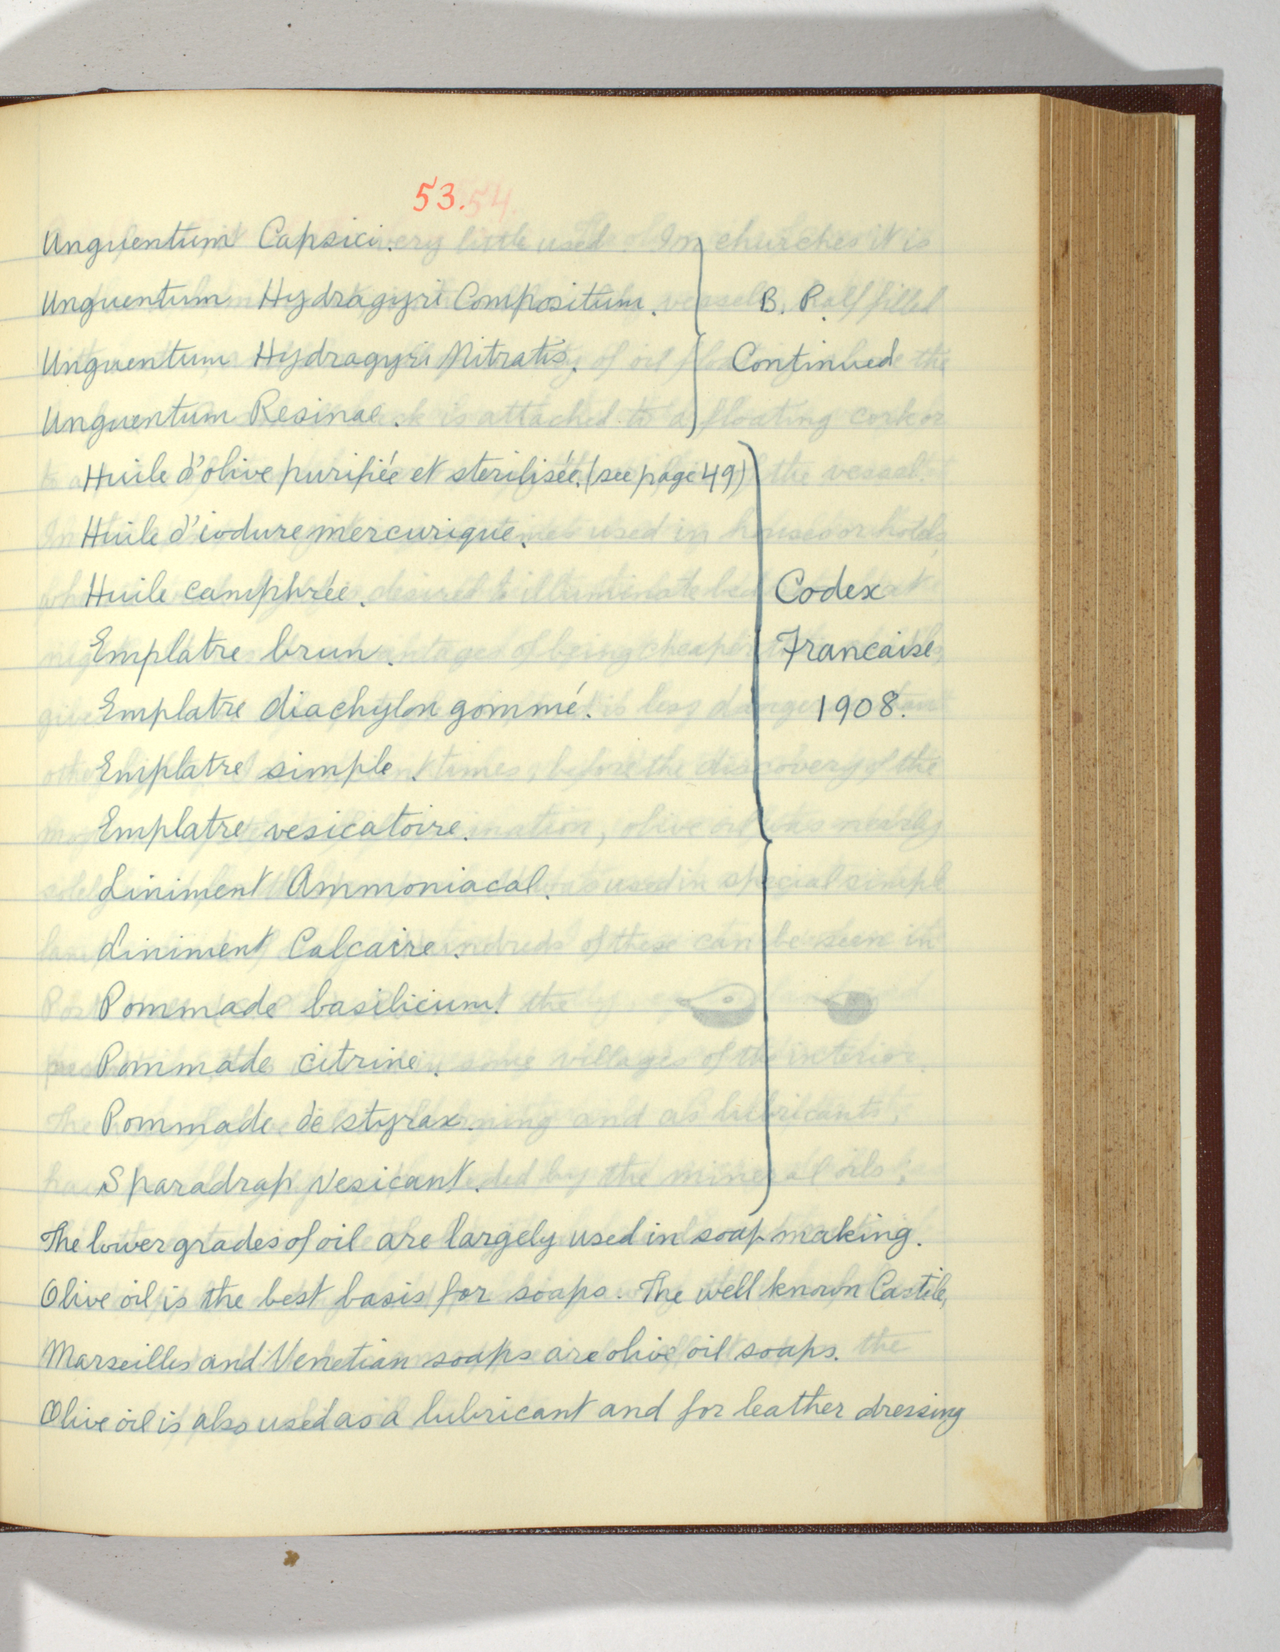 53.
Unguentum Capsici.
Unguentum Hydragyri Compositum. B. P.
Unguentum Hydragyri Nitratis. Continued
Unguentum Resinae.
Huile d'olive purifiée et sterilisée. (see page 49)
Huile d'iodure mercurique.
Huile camphrée. Codex
Emplatre brun. Francaise
Emplatre diachylon gommé. 1908.
Emplatre simple.
Emplatre vesicatoire.
Liniment Ammoniacal.
Liniment Calcaire.
Pommade basilicum.
Pommade citrine.
Pommade de styrax.
Sparadrap vesicant.
The lower grades of oil are largely used in soap making.
Olive oil is the best basis for soaps. The well known Castile,
Marseilles and Venetian soaps are olive oil soaps.
Olive oil is also used as a lubricant and for leather dressing